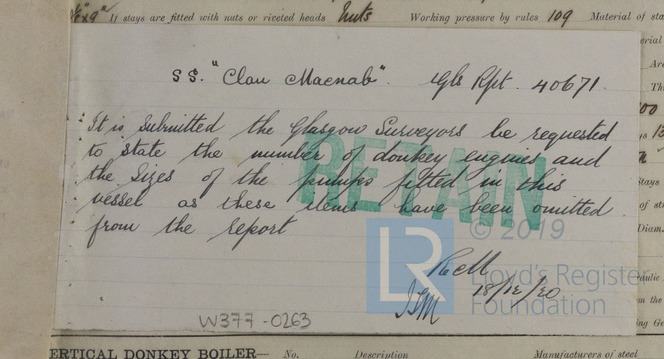 7/8" x 9" If stays are fitted with nuts or riveted heads Nuts Working pressure by rules 109 Material of sta
S.S. "Clan Macnab". Gls Rpt. 40671.
It is submitted the Glasgow Surveyors be requested
to state the number of donkey engines and
the sizes of the pumps fitted in this
vessel as these items have been omitted
from the report
RETAIN
© 2019
LR
Lloyd's Register
Foundation
18/12/20
W377-0263
ERTICAL DONKEY BOILER— No. Description Manufacturers of steel